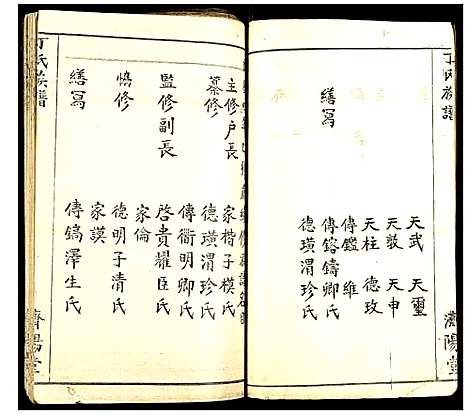 丁氏族譜
濟陽堂
天武 天璽
天毅 天申
天柱 德玫
傳鑑 維
繕寫 傳鎔鑄卿氏
德璜渭珍氏
主修户長 家楷子模氏
纂修 德璜渭珍氏
傳衢明卿氏
監修副長 啓貴耀臣氏
家倫
協修 德明子清氏
家謨
繕寫 傳鎬澤生氏
丁氏族譜
濟陽堂